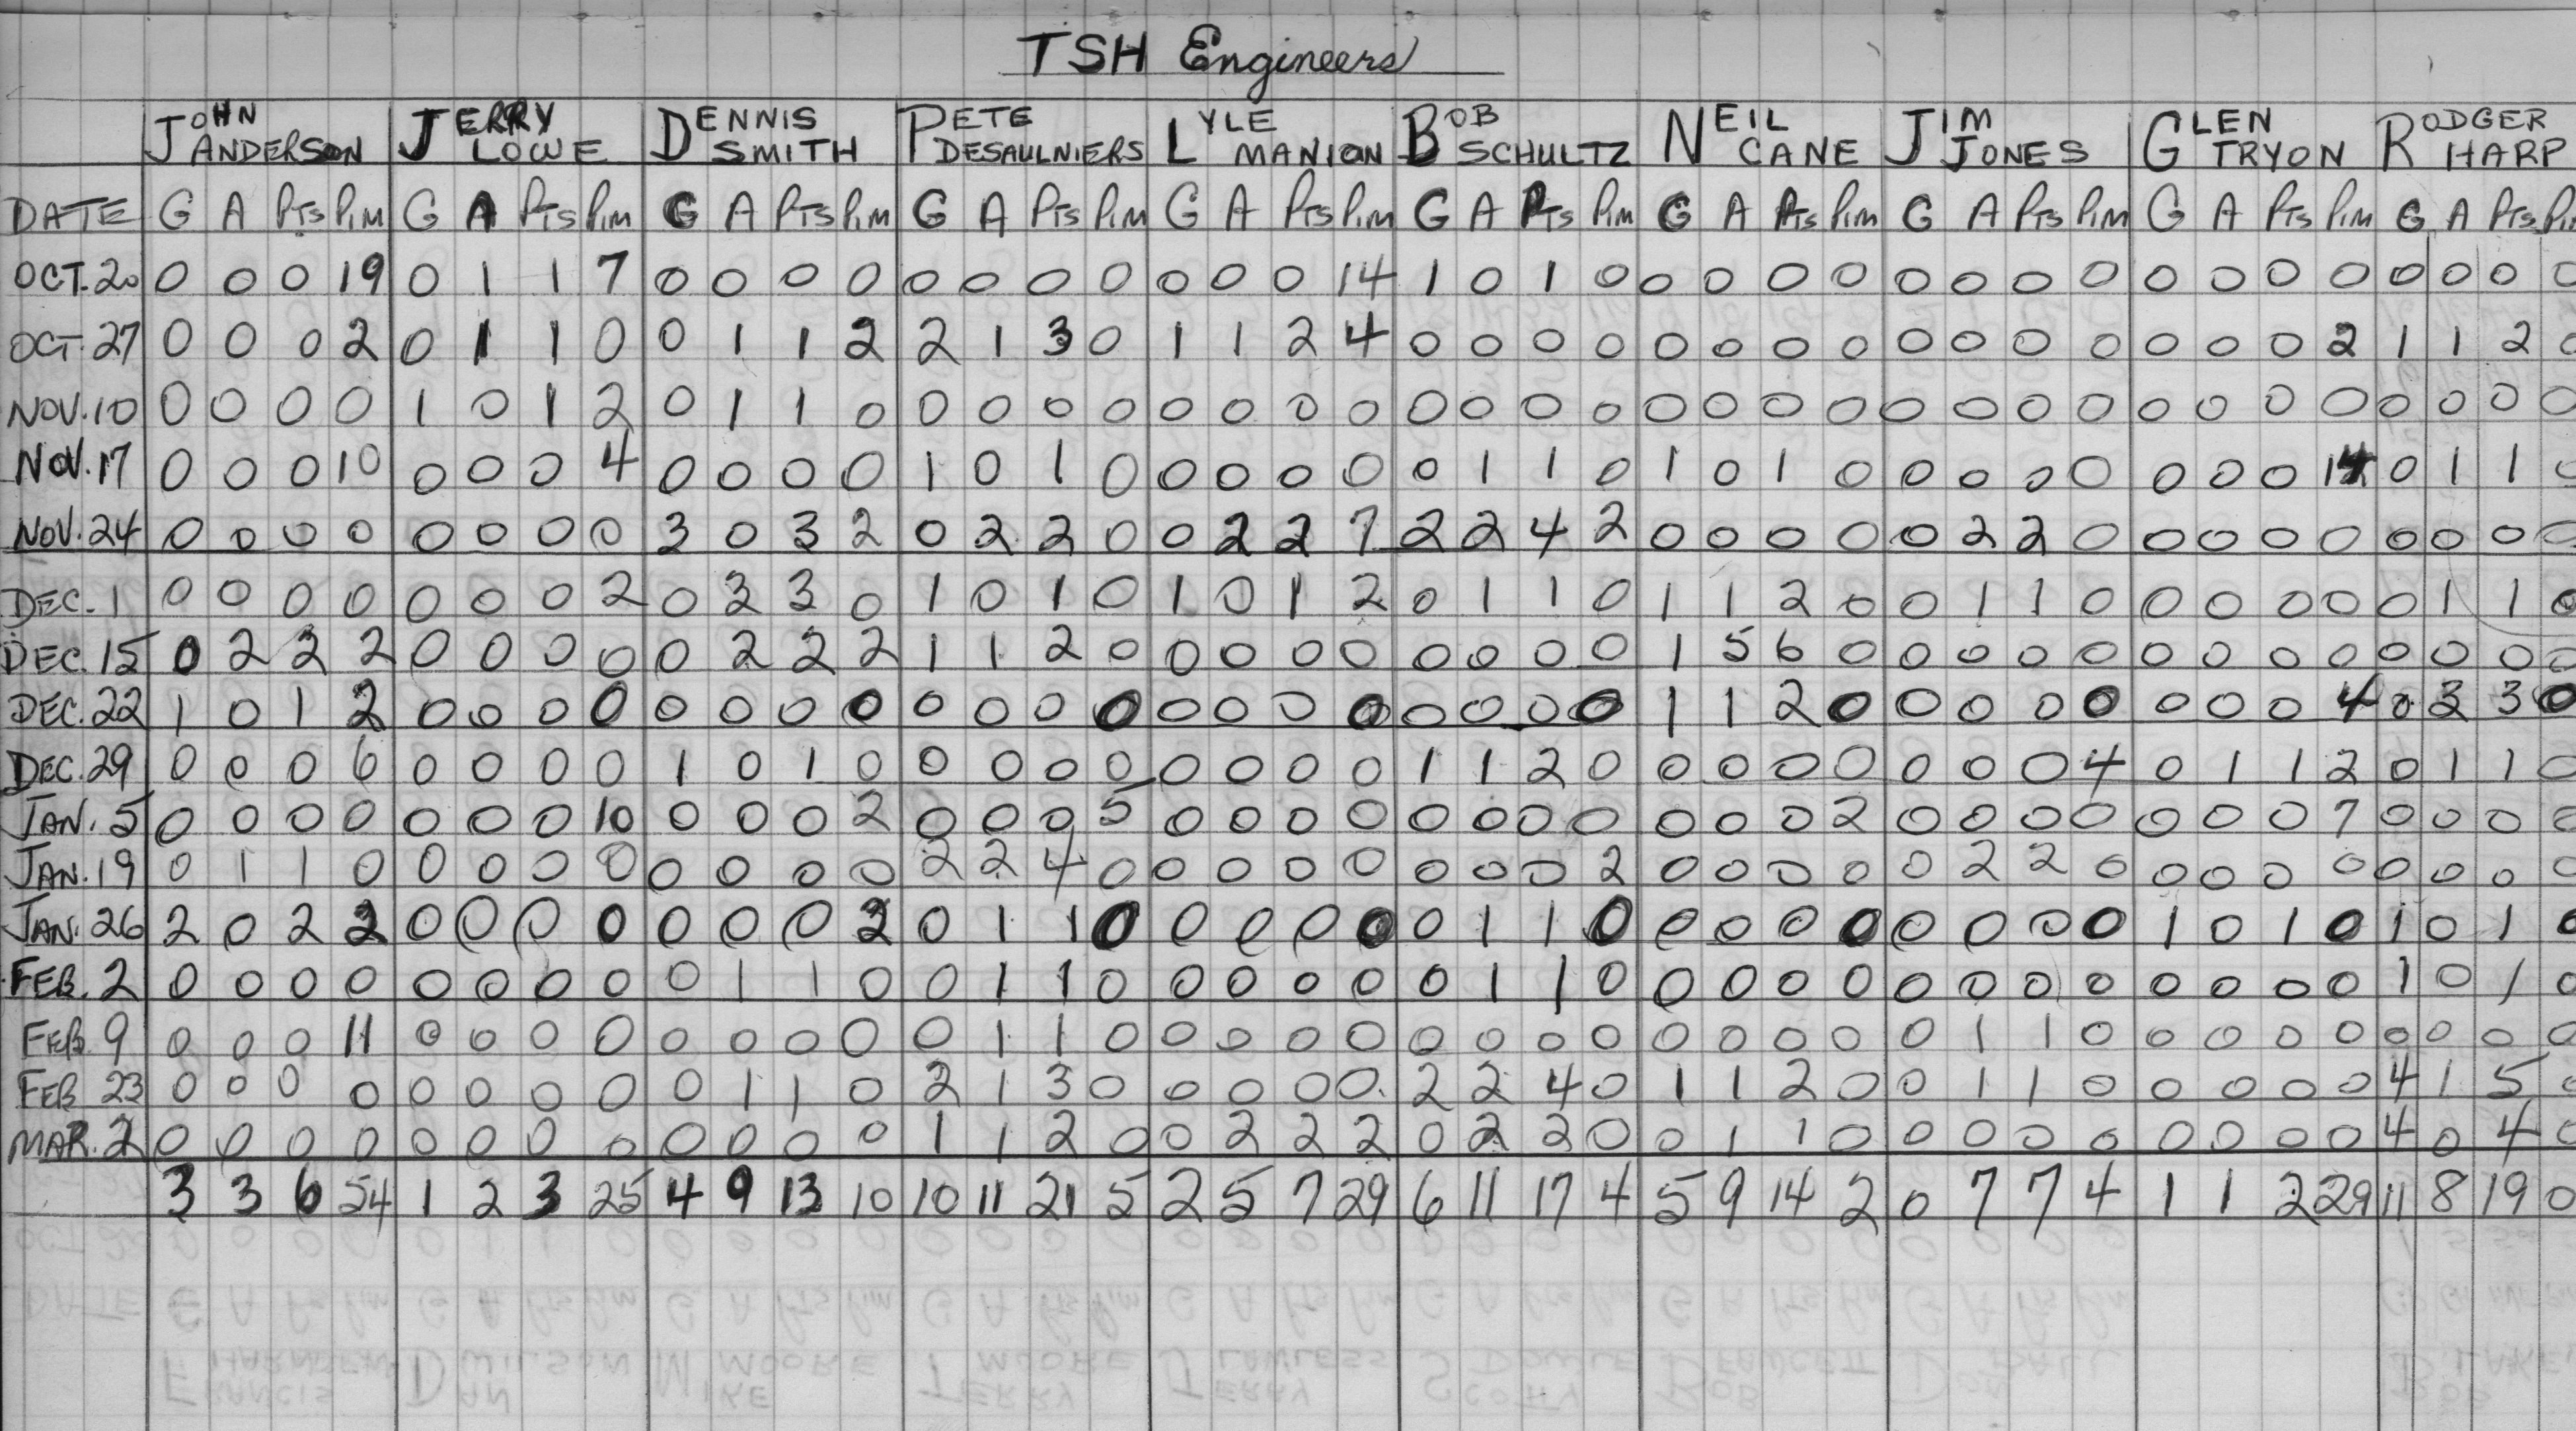 TSH Engineers
JOHN ANDERSON JERRY LOWE DENNIS SMITH PETE DESAULNIERS LYLE MANION BOB SCHULTZ NEIL CANE JIM JONES GLEN TRYON RODGER HARP
DATE G A PTS PIM G A PTS PIM G A PTS PIM G A PTS PIM G A PTS PIM G A PTS PIM G A PTS PIM G A PTS PIM G A PTS PIM G A PTS
OCT. 20 0 0 0 19 0 1 1 7 0 0 0 0 0 0 0 0 0 0 0 14 1 0 1 0 0 0 0 0 0 0 0 0 0 0 0 0 0 0 0 0
OCT. 27 0 0 0 2 0 1 1 0 0 1 1 2 2 1 3 0 1 1 2 4 0 0 0 0 0 0 0 0 0 0 0 0 0 0 0 2 1 1 2 0
NOV. 10 0 0 0 0 1 0 1 2 0 1 1 0 0 0 0 0 0 0 0 0 0 0 0 0 0 0 0 0 0 0 0 0 0 0 0 0 0 0 0 0
NOV. 17 0 0 0 10 0 0 0 4 0 0 0 0 1 0 1 0 0 0 0 0 0 1 1 0 1 0 1 0 0 0 0 0 0 0 0 14 0 1 1 0
NOV. 24 0 0 0 0 0 0 0 0 3 0 3 2 0 2 2 0 0 2 2 7 2 2 4 2 0 0 0 0 0 2 2 0 0 0 0 0 0 0 0 0
DEC. 1 0 0 0 0 0 0 0 2 0 3 3 0 1 0 1 0 1 0 1 2 0 1 1 0 1 1 2 0 0 1 1 0 0 0 0 0 0 1 1 0
DEC. 15 0 2 2 2 0 0 0 0 0 2 2 2 1 1 2 0 0 0 0 0 0 0 0 0 1 5 6 0 0 0 0 0 0 0 0 0 0 0 0 0
DEC. 22 1 0 1 2 0 0 0 0 0 0 0 0 0 0 0 0 0 0 0 0 0 0 0 0 1 1 2 0 0 0 0 0 0 0 0 4 0 3 3 0
DEC. 29 0 0 0 6 0 0 0 0 1 0 1 0 0 0 0 0 0 0 0 0 1 1 2 0 0 0 0 0 0 0 0 4 0 1 1 2 0 1 1 0
JAN. 5 0 0 0 0 0 0 0 10 0 0 0 2 0 0 0 5 0 0 0 0 0 0 0 0 0 0 0 2 0 0 0 0 0 0 0 7 0 0 0 0
JAN. 19 0 1 1 0 0 0 0 0 0 0 0 0 2 2 4 0 0 0 0 0 0 0 0 2 0 0 0 0 0 2 2 0 0 0 0 0 0 0 0 0
JAN. 26 2 0 2 2 0 0 0 0 0 0 0 2 0 1 1 0 0 0 0 0 0 1 1 0 0 0 0 0 0 0 0 0 1 0 1 0 1 0 1 0
FEB. 2 0 0 0 0 0 0 0 0 0 1 1 0 0 1 1 0 0 0 0 0 0 1 1 0 0 0 0 0 0 0 0 0 0 0 0 0 1 0 1 0
FEB. 9 0 0 0 11 0 0 0 0 0 0 0 0 0 1 1 0 0 0 0 0 0 0 0 0 0 0 0 0 0 1 1 0 0 0 0 0 0 0 0 0
FEB 23 0 0 0 0 0 0 0 0 0 1 1 0 2 1 3 0 0 0 0 0 2 2 4 0 1 1 2 0 0 1 1 0 0 0 0 0 4 1 5 0
MAR. 2 0 0 0 0 0 0 0 0 0 0 0 0 1 1 2 0 0 2 2 2 0 2 2 0 0 1 1 0 0 0 0 0 0 0 0 0 4 0 4 0
3 3 6 54 1 2 3 25 4 9 13 10 10 11 21 5 2 5 7 29 6 11 17 4 5 9 14 2 0 7 7 4 1 1 2 29 11 8 19 0